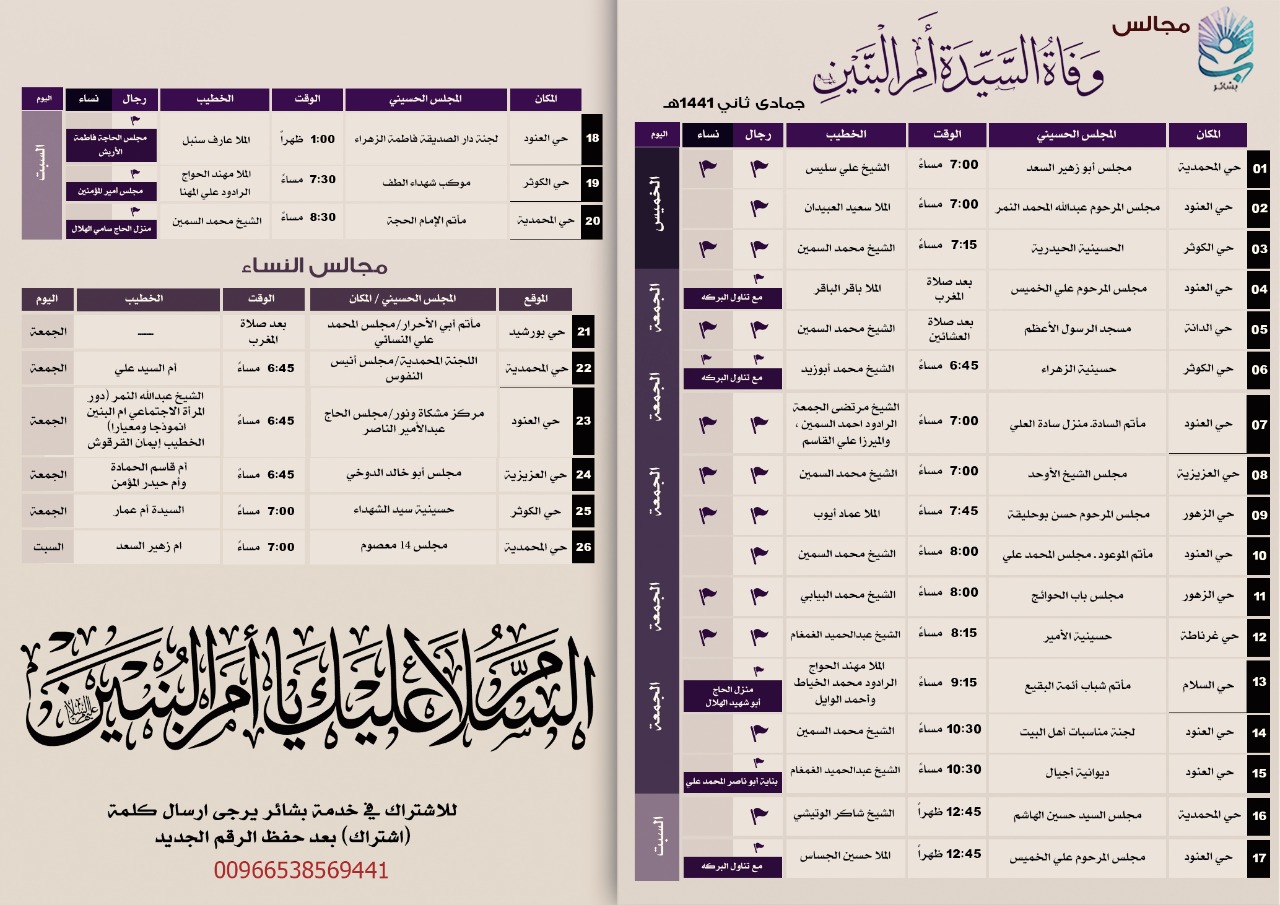 مجالس
وَفَاةُ السَّيِّدَة أُم البَنَّيْنِ
جمادى ثاني 1441هـ
بشائر
المكان المجلس الحسيني الوقت الخطيب رجال نساء اليوم
الخميس
01 حي المحمدية مجلس أبو زهير السعد 7:00 مساءً الشيخ علي سليس
02 حي العنود مجلس المرحوم عبدالله المحمد النمر 7:00 مساءً الملا سعيد العبيدان
03 حي الكوثر الحسينية الحيدرية 7:15 مساءً الشيخ محمد السمين
الجمعة
04 حي العنود مجلس المرحوم علي الخميس بعد صلاة المغرب الملا باقر الباقر مع تناول البركه
05 حي الدانة مسجد الرسول الأعظم بعد صلاة العشائين الشيخ محمد السمين
الجمعة
06 حي الكوثر حسينية الزهراء 6:45 مساءً الشيخ محمد أبوزيد مع تناول البركه
07 حي العنود مأتم السادة. منزل سادة العلي 7:00 مساءً الشيخ مرتضى الجمعة الرادود احمد السمين ، والميرزا علي القاسم
الجمعة
08 حي العزيزية مجلس الشيخ الأوحد 7:00 مساءً الشيخ محمد السمين
09 حي الزهور مجلس المرحوم حسن بوحليقة 7:45 مساءً الملا عماد أيوب
10 حي العنود مأتم الموعود . مجلس المحمد علي 8:00 مساءً الشيخ محمد السمين
الجمعة
11 حي الزهور مجلس باب الحوائج 8:00 مساءً الشيخ محمد البيابي
12 حي غرناطة حسينية الأمير 8:15 مساءً الشيخ عبدالحميد الغمغام
الجمعة
13 حي السلام مأتم شباب أئمة البقيع 9:15 مساءً الملا مهند الحواج الرادود محمد الخياط وأحمد الوايل منزل الحاج أبو شهيد الهلال
14 حي العنود لجنة مناسبات أهل البيت 10:30 مساءً الشيخ محمد السمين
15 حي العنود ديوانية أجيال 10:30 مساءً الشيخ عبدالحميد الغمغام بناية أبو ناصر المحمد علي
السبت
16 حي المحمدية مجلس السيد حسين الهاشم 12:45 ظهراً الشيخ شاكر الوتيشي
17 حي العنود مجلس المرحوم علي الخميس 12:45 ظهراً الملا حسين الجساس مع تناول البركه
المكان المجلس الحسيني الوقت الخطيب رجال نساء اليوم
السبت
18 حي العنود لجنة دار الصديقة فاطمة الزهراء 1:00 ظهراً الملا عارف سنبل مجلس الحاجة فاطمة الأربش
19 حي الكوثر موكب شهداء الطف 7:30 مساءً الملا مهند الحواج الرادود علي المهنا مجلس أمير المؤمنين
20 حي المحمدية مأتم الإمام الحجة 8:30 مساءً الشيخ محمد السمين منزل الحاج سامي الهلال
مجالس النساء
الموقع المجلس الحسيني / المكان الوقت الخطيب اليوم
21 حي بورشيد مأتم أبي الأحرار/مجلس المحمد علي النسائي بعد صلاة المغرب ـــــ الجمعة
22 حي المحمدية اللجنة المحمدية/مجلس أنيس النفوس 6:45 مساءً أم السيد علي الجمعة
23 حي العنود مركز مشكاة ونور/مجلس الحاج عبدالأمير الناصر 6:45 مساءً الشيخ عبدالله النمر (دور المرأة الاجتماعي ام البنين انموذجا ومعيارا) الخطيب إيمان القرقوش الجمعة
24 حي العزيزية مجلس أبو خالد الدوخي 6:45 مساءً أم قاسم الحمادة وأم حيدر المؤمن الجمعة
25 حي الكوثر حسينية سيد الشهداء 7:00 مساءً السيدة أم عمار الجمعة
26 حي المحمدية مجلس 14 معصوم 7:00 مساءً ام زهير السعد السبت
السلام عليك يا أم البنين
للاشتراك في خدمة بشائر يرجى ارسال كلمة
(اشتراك) بعد حفظ الرقم الجديد
00966538569441